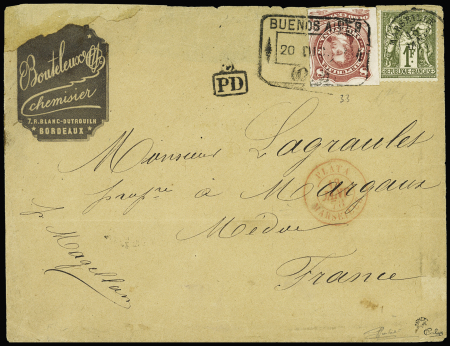 Bouteleux
chemisier
7. R. BLANC-DUTROUILH
BORDEAUX
BUENOS AIRES
20
PD
1F
REPUBLIQUE FRANCAISE
33
Monsieur Lagraulet
propre à Margaux
Médoc
France
p Magellan
PLATA
MARSE